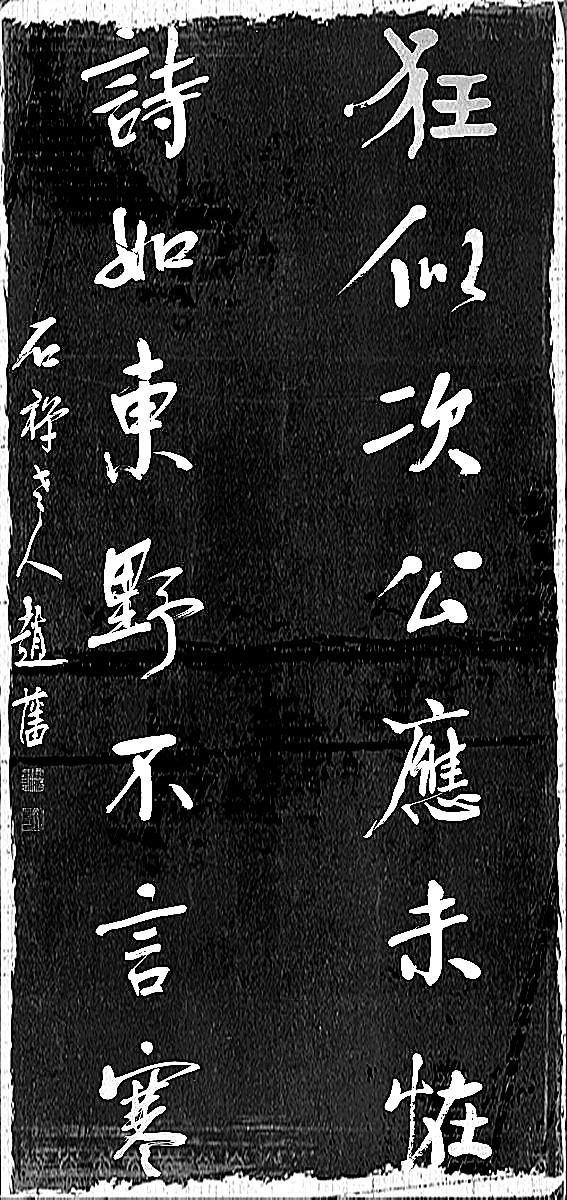 狂似次公應未恠
詩如東野不言寒
石禪老人趙藩